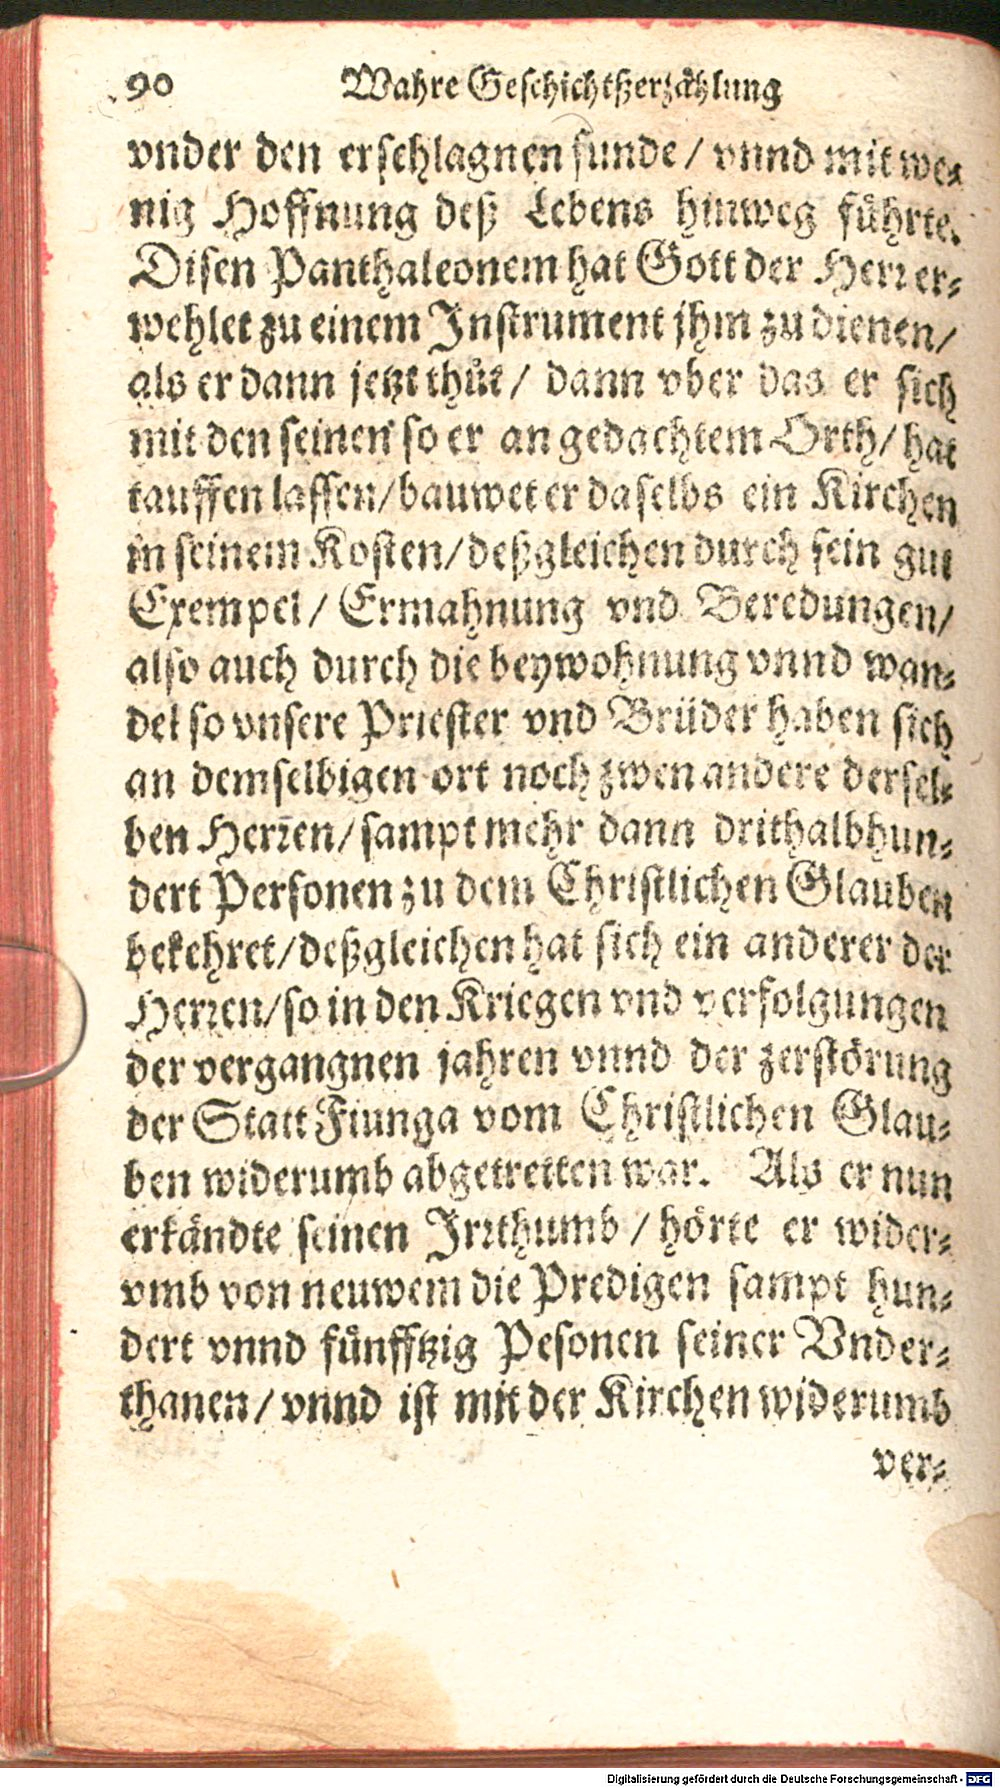 90 Wahre Geschichtßerzählung
vnder den erschlagnen funde / vnnd mit we⸗
nig Hoffnung deß Lebens hinweg führte.
Disen Panthaleonem hat Gott der Herr er⸗
wehlet zu einem Instrument jhm zu dienen /
als er dann jetzt thůt / dann vber das er sich
mit den seinen so er an gedachtem Orth / hat
tauffen lassen / bauwet er daselbs ein Kirchen
in seinem Kosten / deßgleichen durch sein gut
Exempel / Ermahnung vnd Beredungen /
also auch durch die beywohnung vnnd wan⸗
del so vnsere Priester vnd Brüder haben sich
an demselbigen ort noch zwen andere dersel⸗
ben Herrē̄en / sampt mehr dann drithalbhun⸗
dert Personen zu dem Christlichen Glauben
bekehret / deßgleichen hat sich ein anderer der
Herren / so in den Kriegen vnd verfolgungen
der vergangnen jahren vnnd der zerstörung
der Statt Fiunga vom Christlichen Glau⸗
ben widerumb abgetretten war. Als er nun
erkändte seinen Irrthumb / hörte er wider⸗
vmb von neuwem die Predigen sampt hun⸗
dert vnnd fünfftzig Pesonen seiner Vnder⸗
thanen / vnnd ist mit der Kirchen widerumb
ver⸗
Digitalisierung gefördert durch die Deutsche Forschungsgemeinschaft - DFG